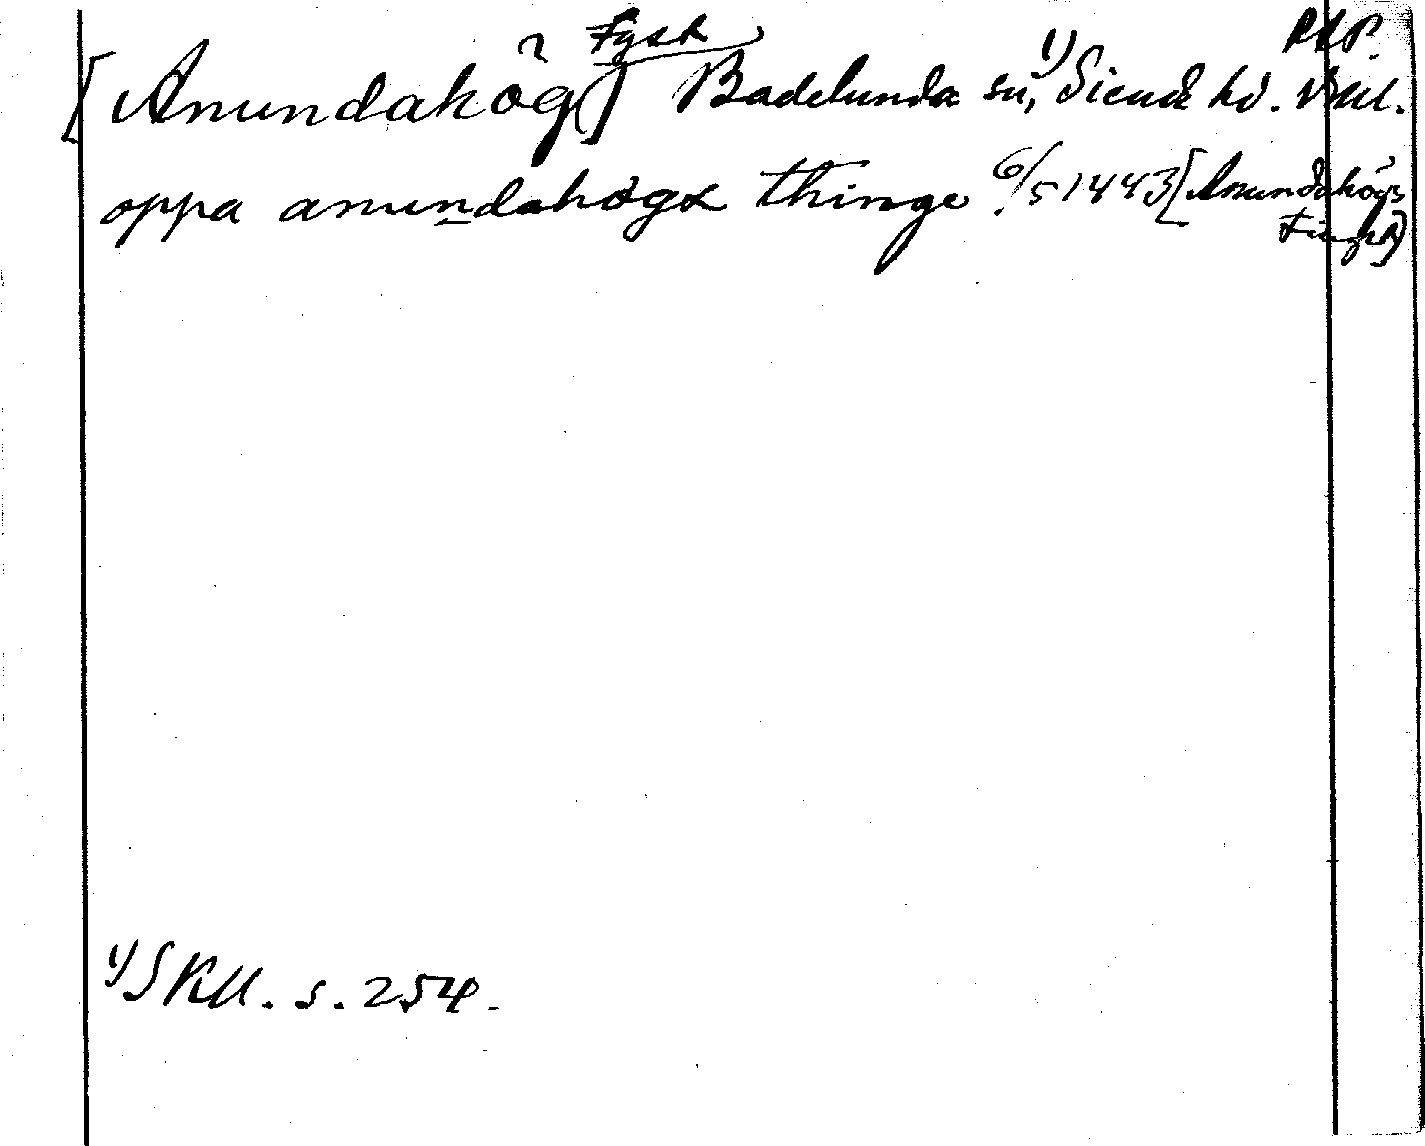 Fysk
[Anundahög] Badelunda sn, 1) Siende hd. Vstml.
oppa anundahögx thinge 6/5 1443 [Anundahögs
tinge]
1) SRU. s. 254.